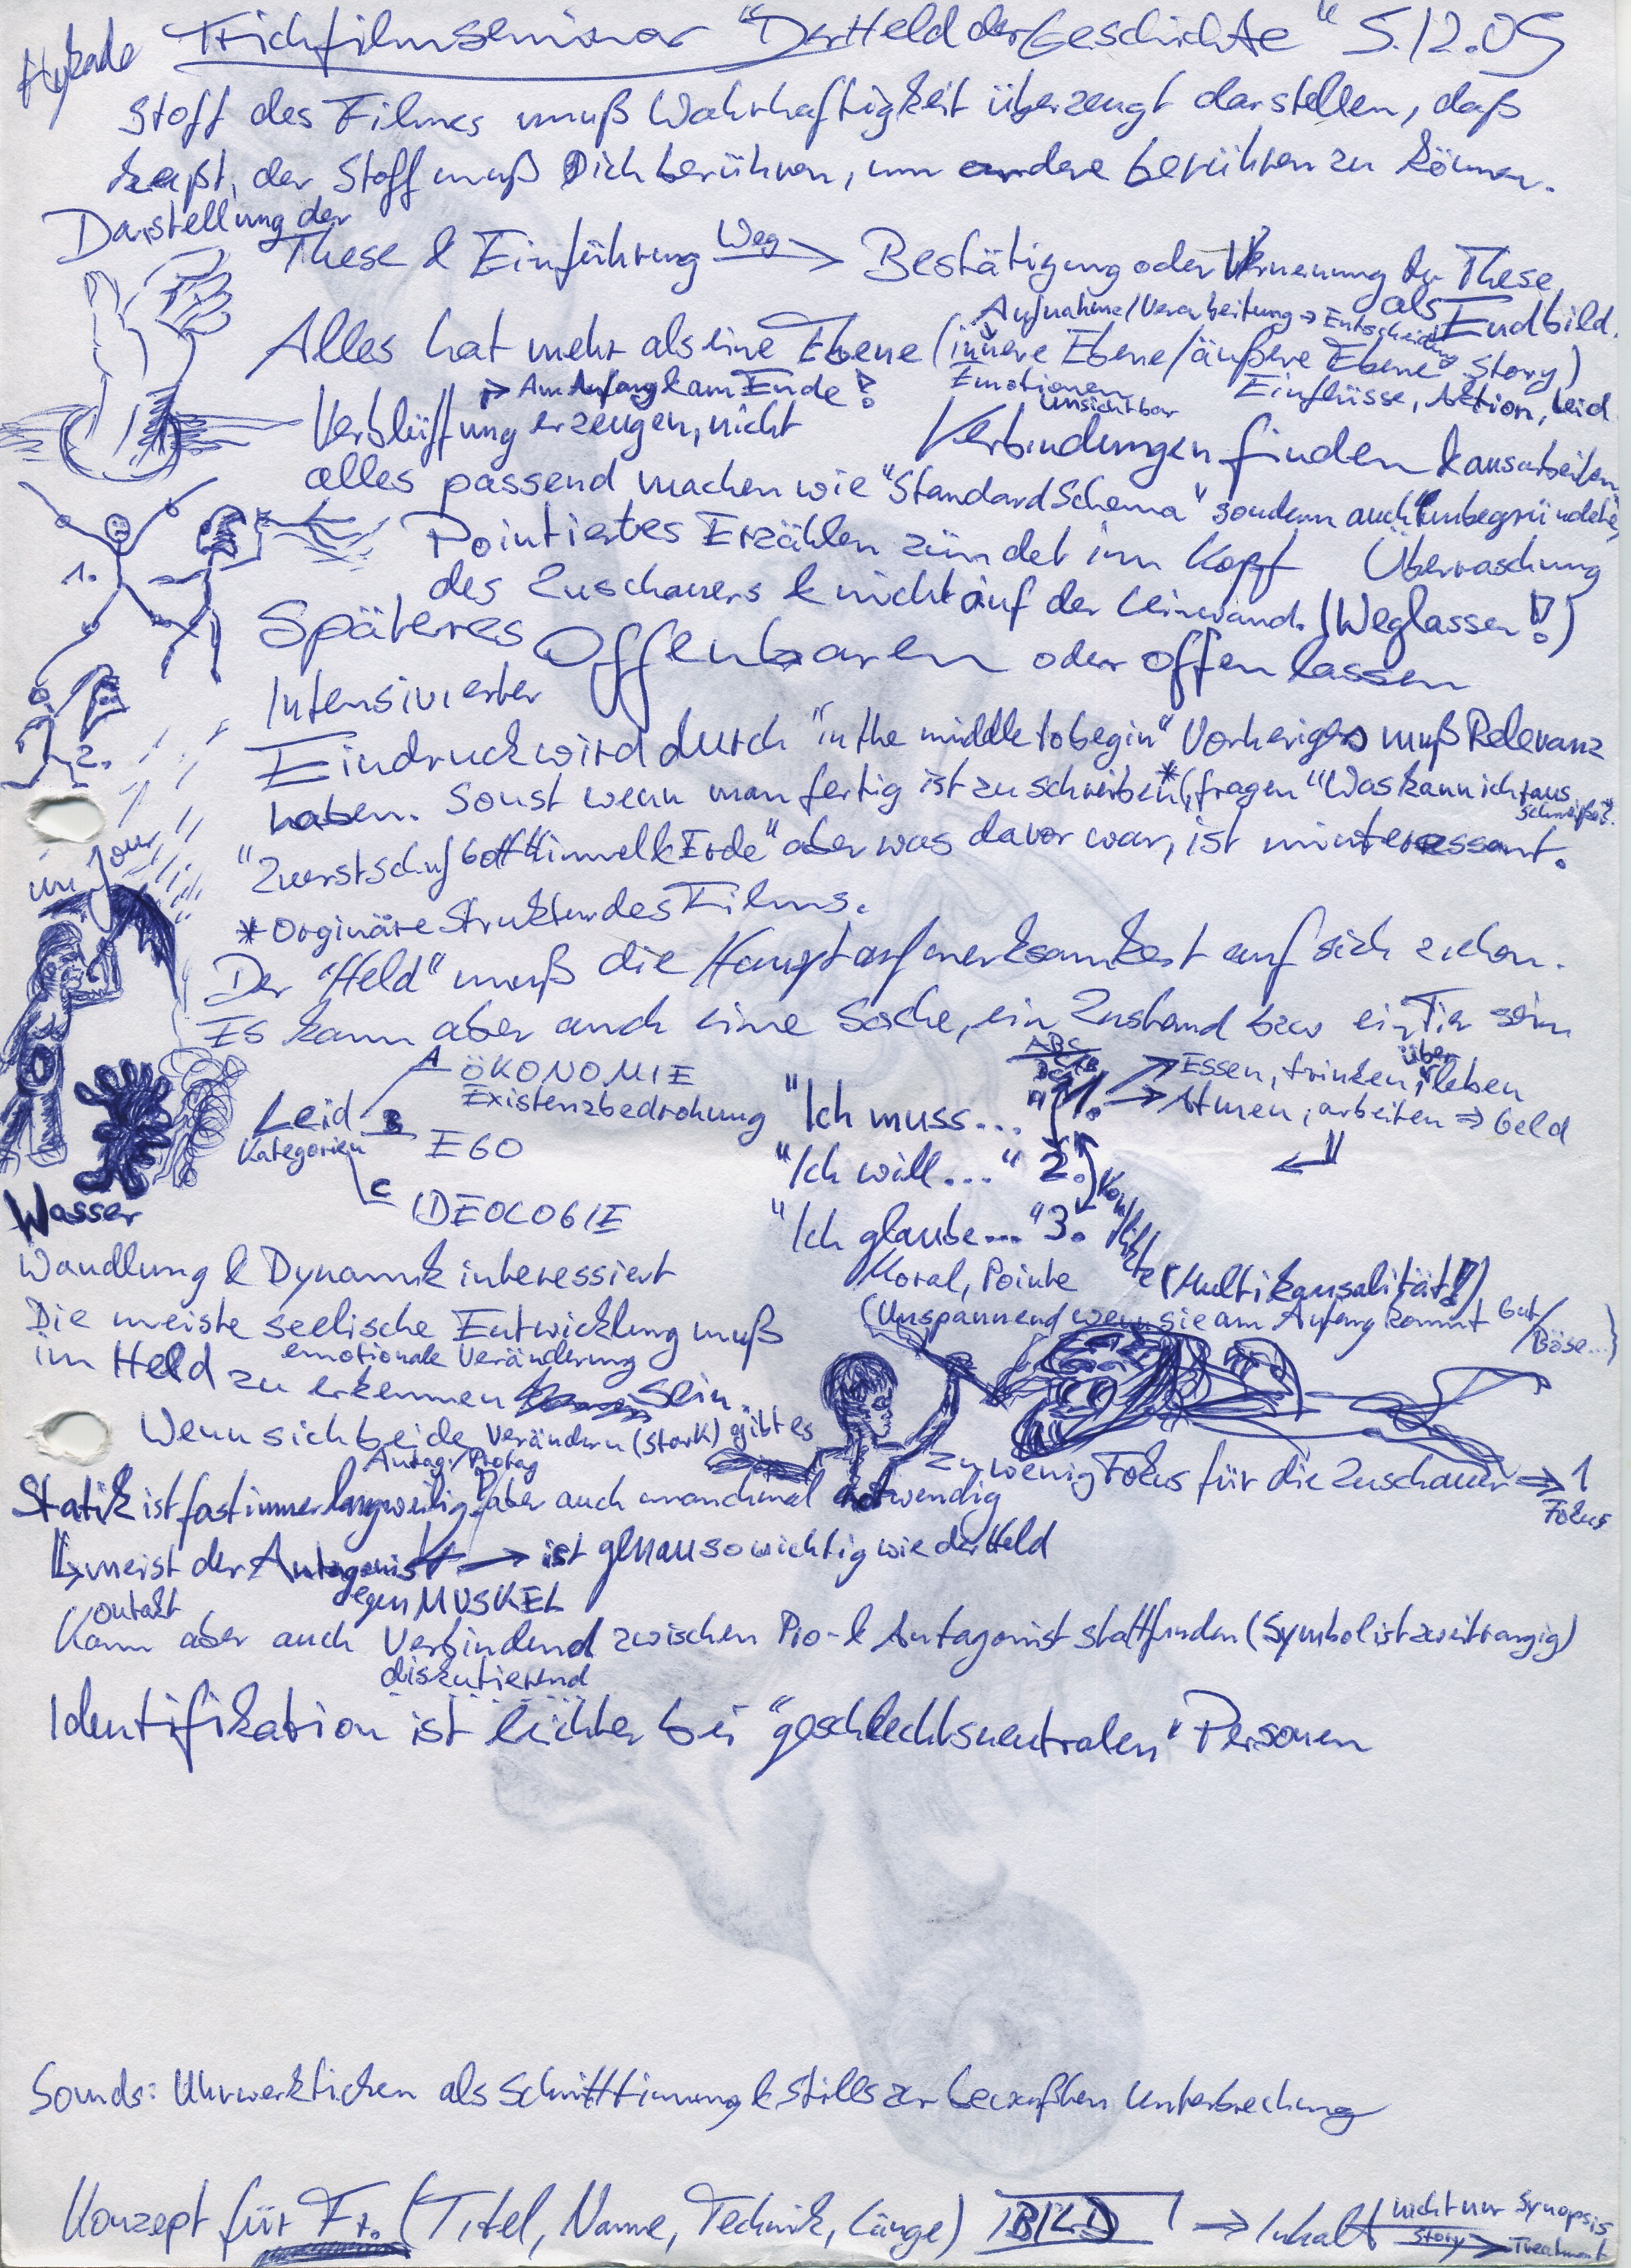 Hykade Trickfilmseminar "Der Held der Geschichte" 5.12.05
Stoff des Filmes muß Wahrhaftigkeit überzeugt darstellen, daß
heißt, der Stoff muß Dich berühren, um andere berühren zu können.
Darstellung der
These & Einführung Weg → Bestätigung oder Verneinung der These
als Endbild.
Aufnahme/Verarbeitung → Entscheidung
Alles hat mehr als eine Ebene (innere Ebene/äußere Ebene Story)
Emotionen unsichtbar
Einflüsse, Aktion, Leid
→ Am Anfang & am Ende!
Verblüffung erzeugen, nicht
Verbindungen finden & ausarbeiten
alles passend machen wie "Standard Schema" sondern auch "unbegründete"
Überraschung
Pointiertes Erzählen zündet im Kopf
des Zuschauers & nicht auf der Leinwand. (Weglassen!)
1.
Späteres Offenbaren oder offen lassen
Intensivierter
2.
Eindruck wird durch "in the middle to begin" Vorheriges muß Relevanz
haben. Sonst wenn man fertig ist zu schreiben*, fragen "Was kann ich raus
schmeißen?"
"Zuerst schuf Gott Himmel & Erde" aber was davor war, ist uninteressant.
un jour
* Orginäre Struktur des Films.
Der "Held" muß die Hauptaufmerksamkeit auf sich ziehen.
Es kann aber auch eine Sache, ein Zustand bzw ein Tier sein
Leid
Kategorien
A ÖKONOMIE
Existenzbedrohung
B EGO
C IDEOLOGIE
ABC
"Ich muss... 1. → Essen, trinken, überleben
→ Atmen, arbeiten ⇒ Geld
"Ich will..." 2.
"Ich glaube..." 3.
Konflikte (Multikausalität!)
Moral, Pointe
(Unspannend wenn sie am Anfang kommt Gut/
Böse...)
Wasser
Wandlung & Dynamik interessiert
Die meiste seelische Entwicklung muß
emotionale Veränderung
im Held zu erkennen sein.
Wenn sich beide verändern (stark) gibt es
Antag./Protag
zu wenig Fokus für die Zuschauer ⇒ 1
Fokus
Statik ist fast immer langweilig, aber auch manchmal notwendig
↳ meist der Antagonist → ist genauso wichtig wie der Held
gegen MUSKEL
Kontakt
Kann aber auch Verbindend zwischen Pro- & Antagonist stattfinden (Symbol ist zweitrangig)
diskutierend
Identifikation ist leichter bei "geschlechtsneutralen" Personen
Sounds: Uhrwerkticken als Schnitttiming & Stills zur bewußten Unterbrechung
Konzept für Fr. (Titel, Name, Technik, Länge) BILD → Inhalt nicht nur Synopsis
Story → Treatment